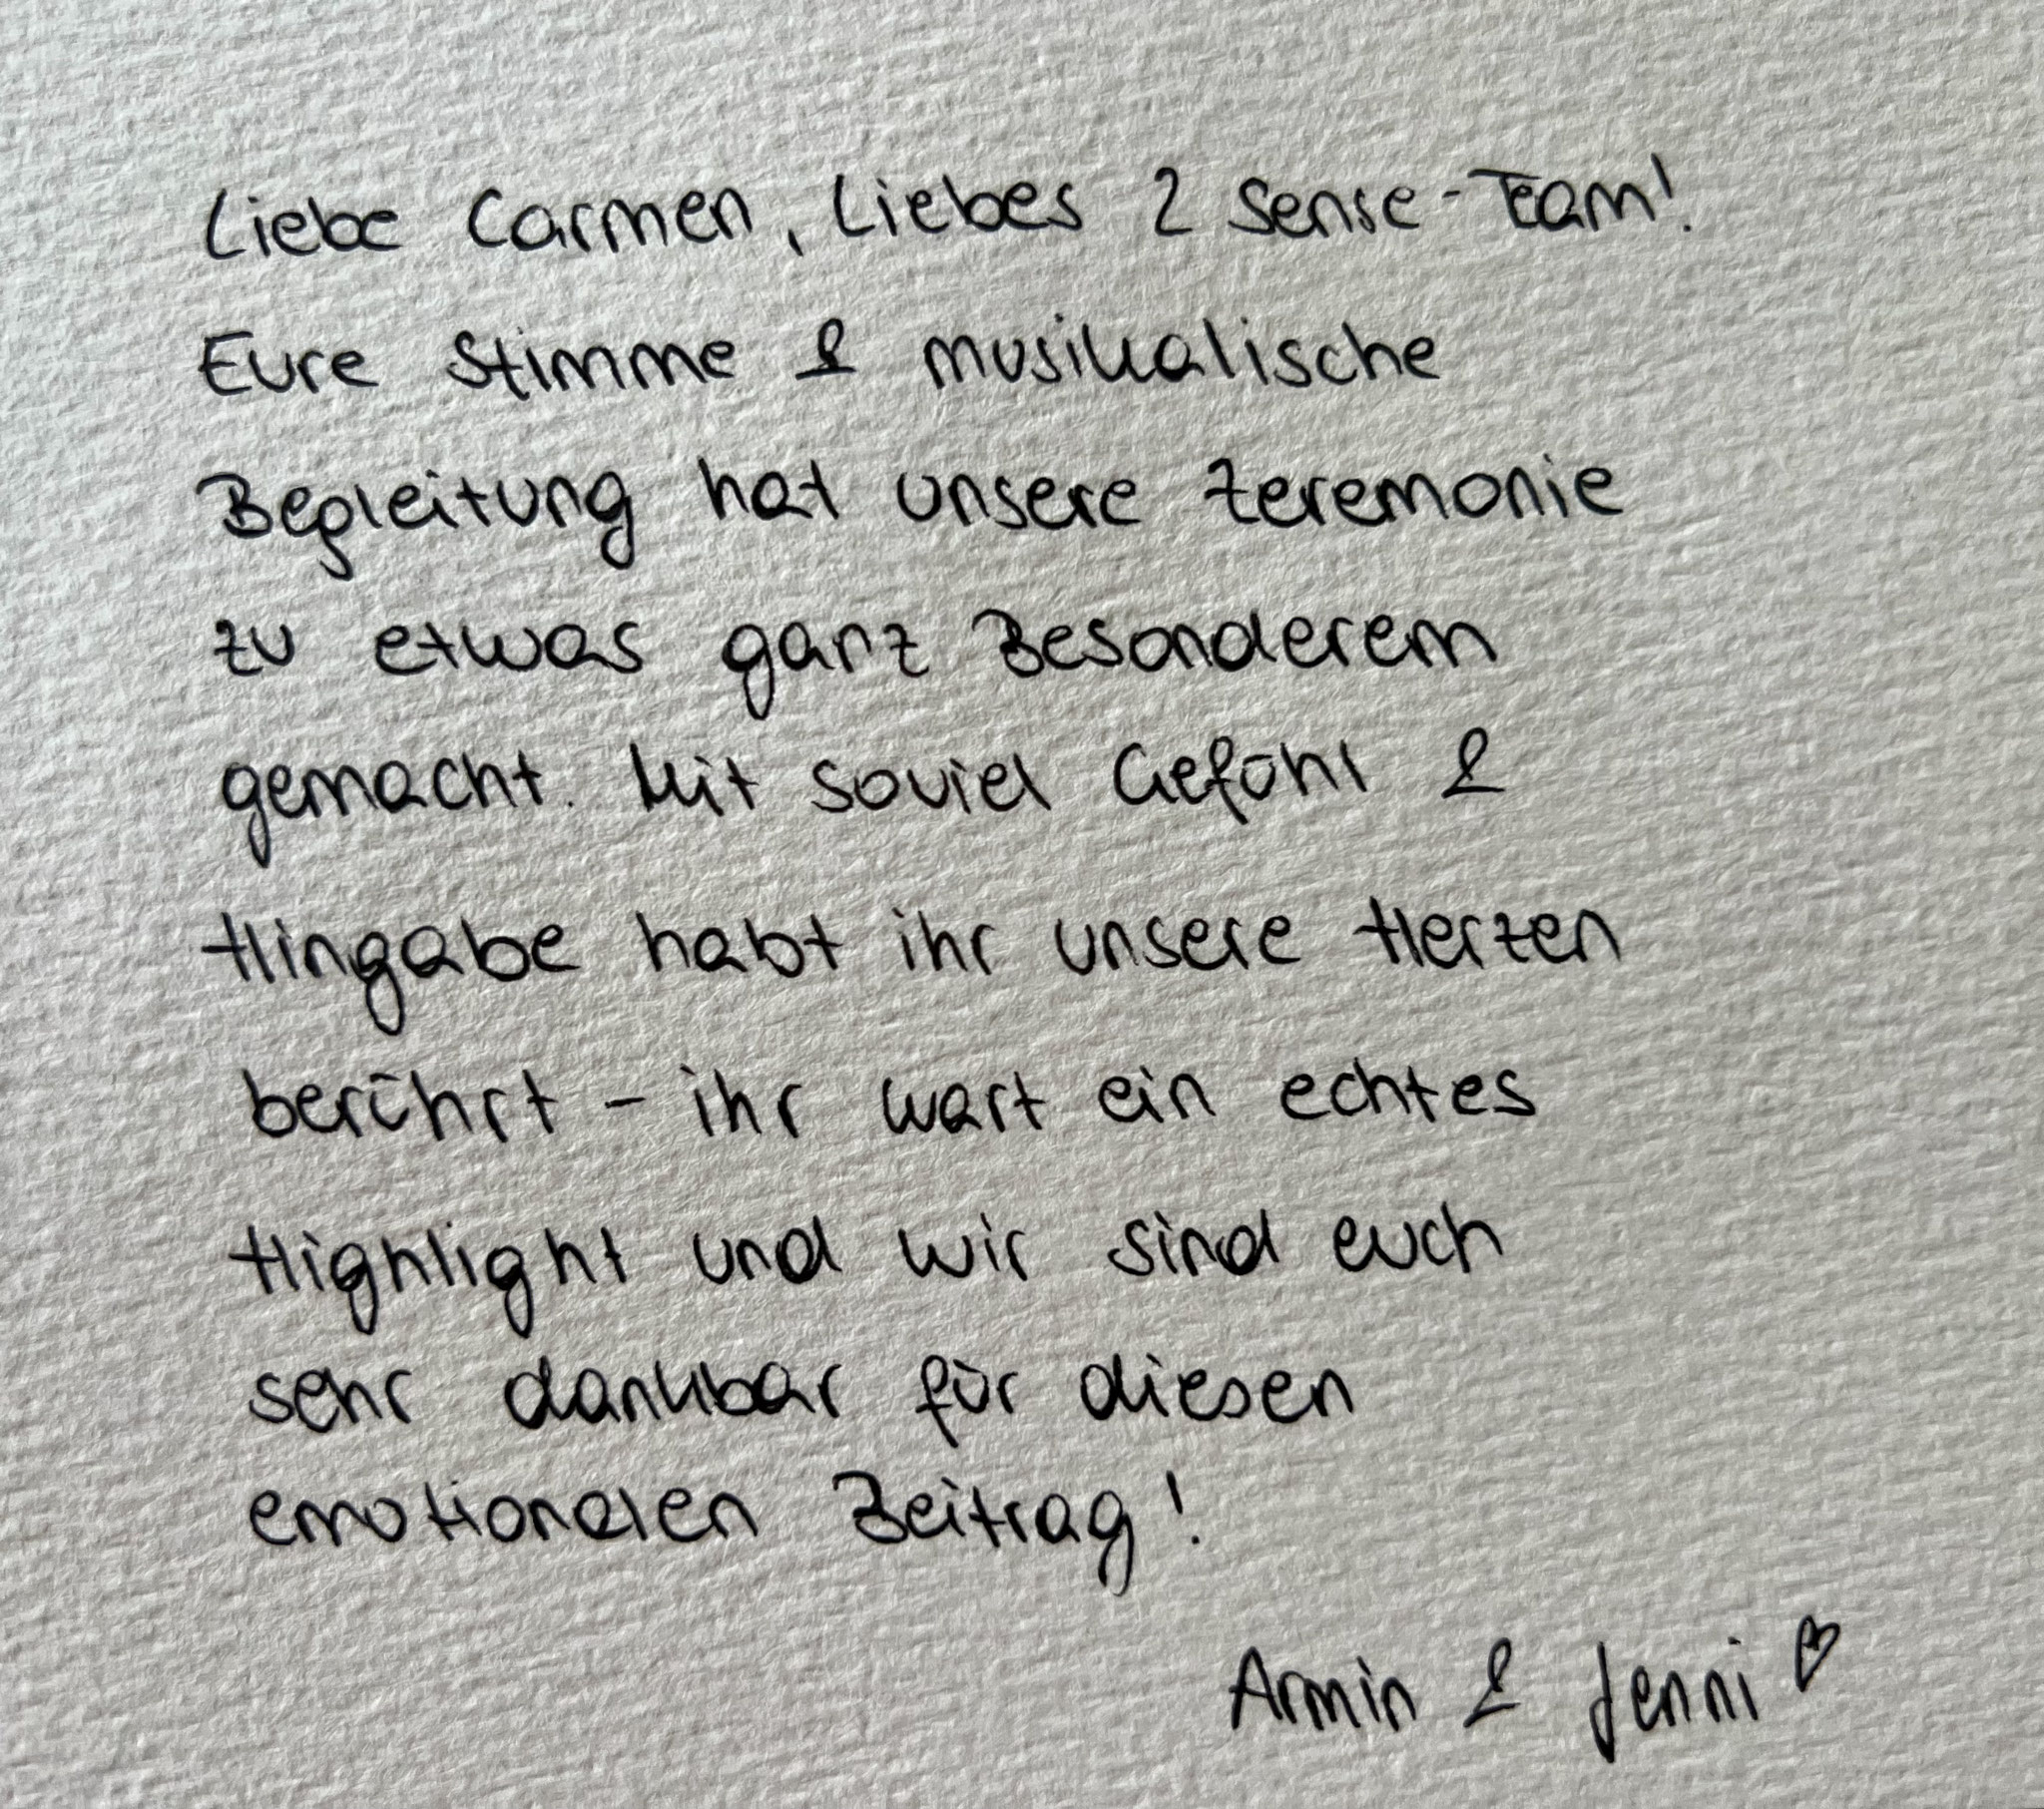 Liebe Carmen, Liebes 2 Sense-Team!
Eure Stimme & musikalische
Begleitung hat unsere Zeremonie
zu etwas ganz Besonderem
gemacht. Mit soviel Gefühl &
Hingabe habt ihr unsere Herzen
berührt - ihr wart ein echtes
Highlight und wir sind euch
sehr dankbar für diesen
emotionalen Beitrag!
Armin & Jenni ♡